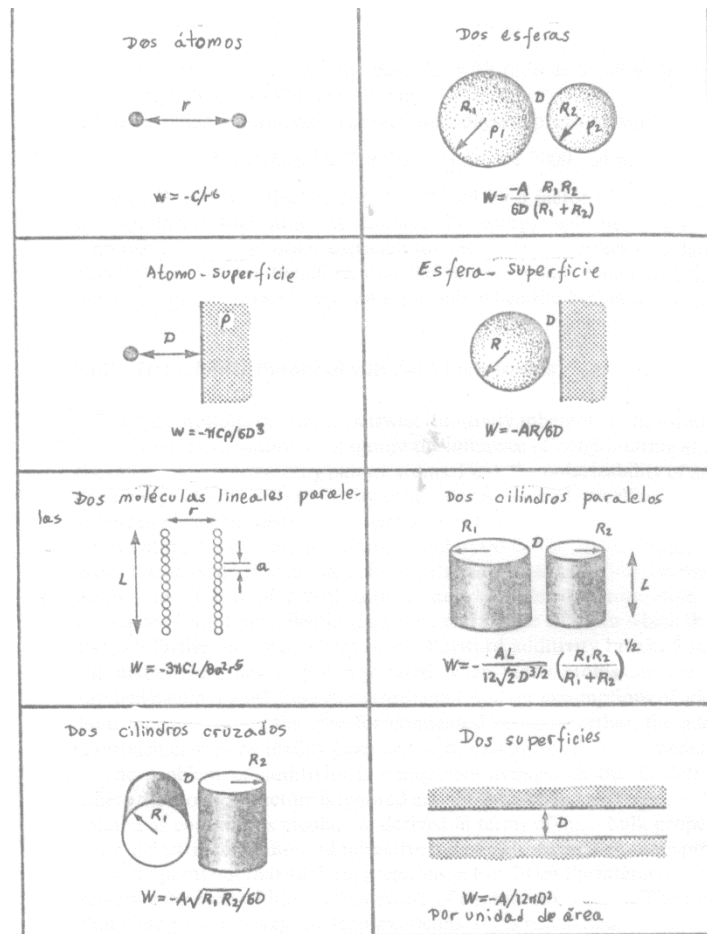 Dos átomos
r
w = -C/r⁶
Dos esferas
R₁
ρ₁
D
R₂
ρ₂
W = -A/6D R₁R₂/(R₁ + R₂)
Atomo-superficie
D
ρ
w = -πCρ/6D³
Esfera-superficie
R
D
W = -AR/6D
Dos moléculas lineales parale-
las
r
L
a
W = -3πCL/8a²r⁵
Dos cilindros paralelos
R₁
D
R₂
L
W = - AL/12√2 D^3/2 (R₁R₂/R₁+R₂)^1/2
Dos cilindros cruzados
R₁
D
R₂
W = -A√R₁R₂/6D
Dos superficies
D
W = -A/12πD²
por unidad de área